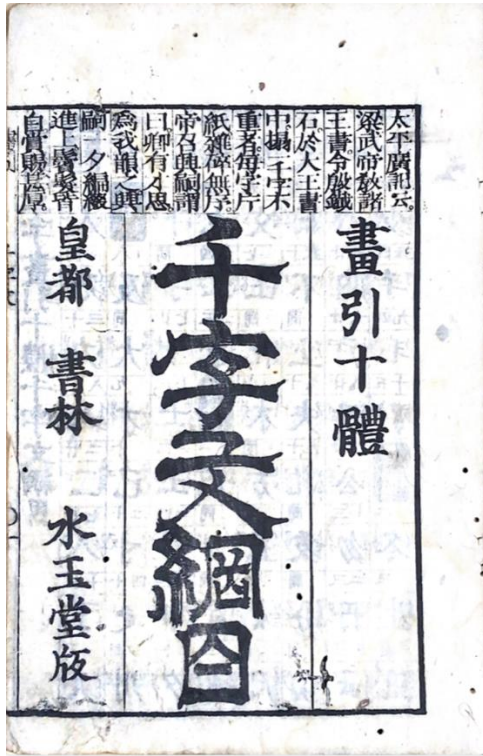 太平廣記云。
梁武帝教諸
王書令殷鐵
石於大王書
中搨一千字不
重者每字片
紙雜碎無序。
帝召興嗣謂
曰卿有才思
為我韻之興
嗣一夕編綴
進上鬢髮皆
白賞賜甚厚。
畫引十體
千字文綱目
皇都 書林 水玉堂版